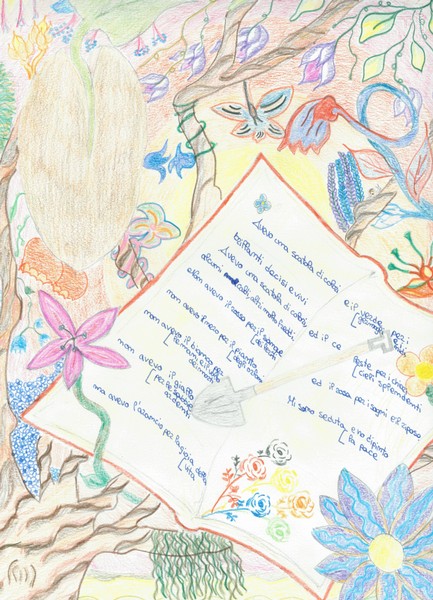 Avevo una scatola di colori
brillanti, decisi e vivi
Avevo una scatola di colori,
alcuni caldi, altri molto freddi.
non avevo il rosso per il sangue
non avevo il nero per il pianto
[degli orfani
non avevo il bianco per
[le mani e il volto
dei morti
non avevo il giallo
[per la sabbia
ardente
ma avevo l'arancio per la gioia della
[vita
e il verde per i
[germogli e i nidi
ed il ce
leste per i chiari
[cieli splendenti
ed il rosa per i sogni e il riposo
Mi sono seduta e ho dipinto
[la pace